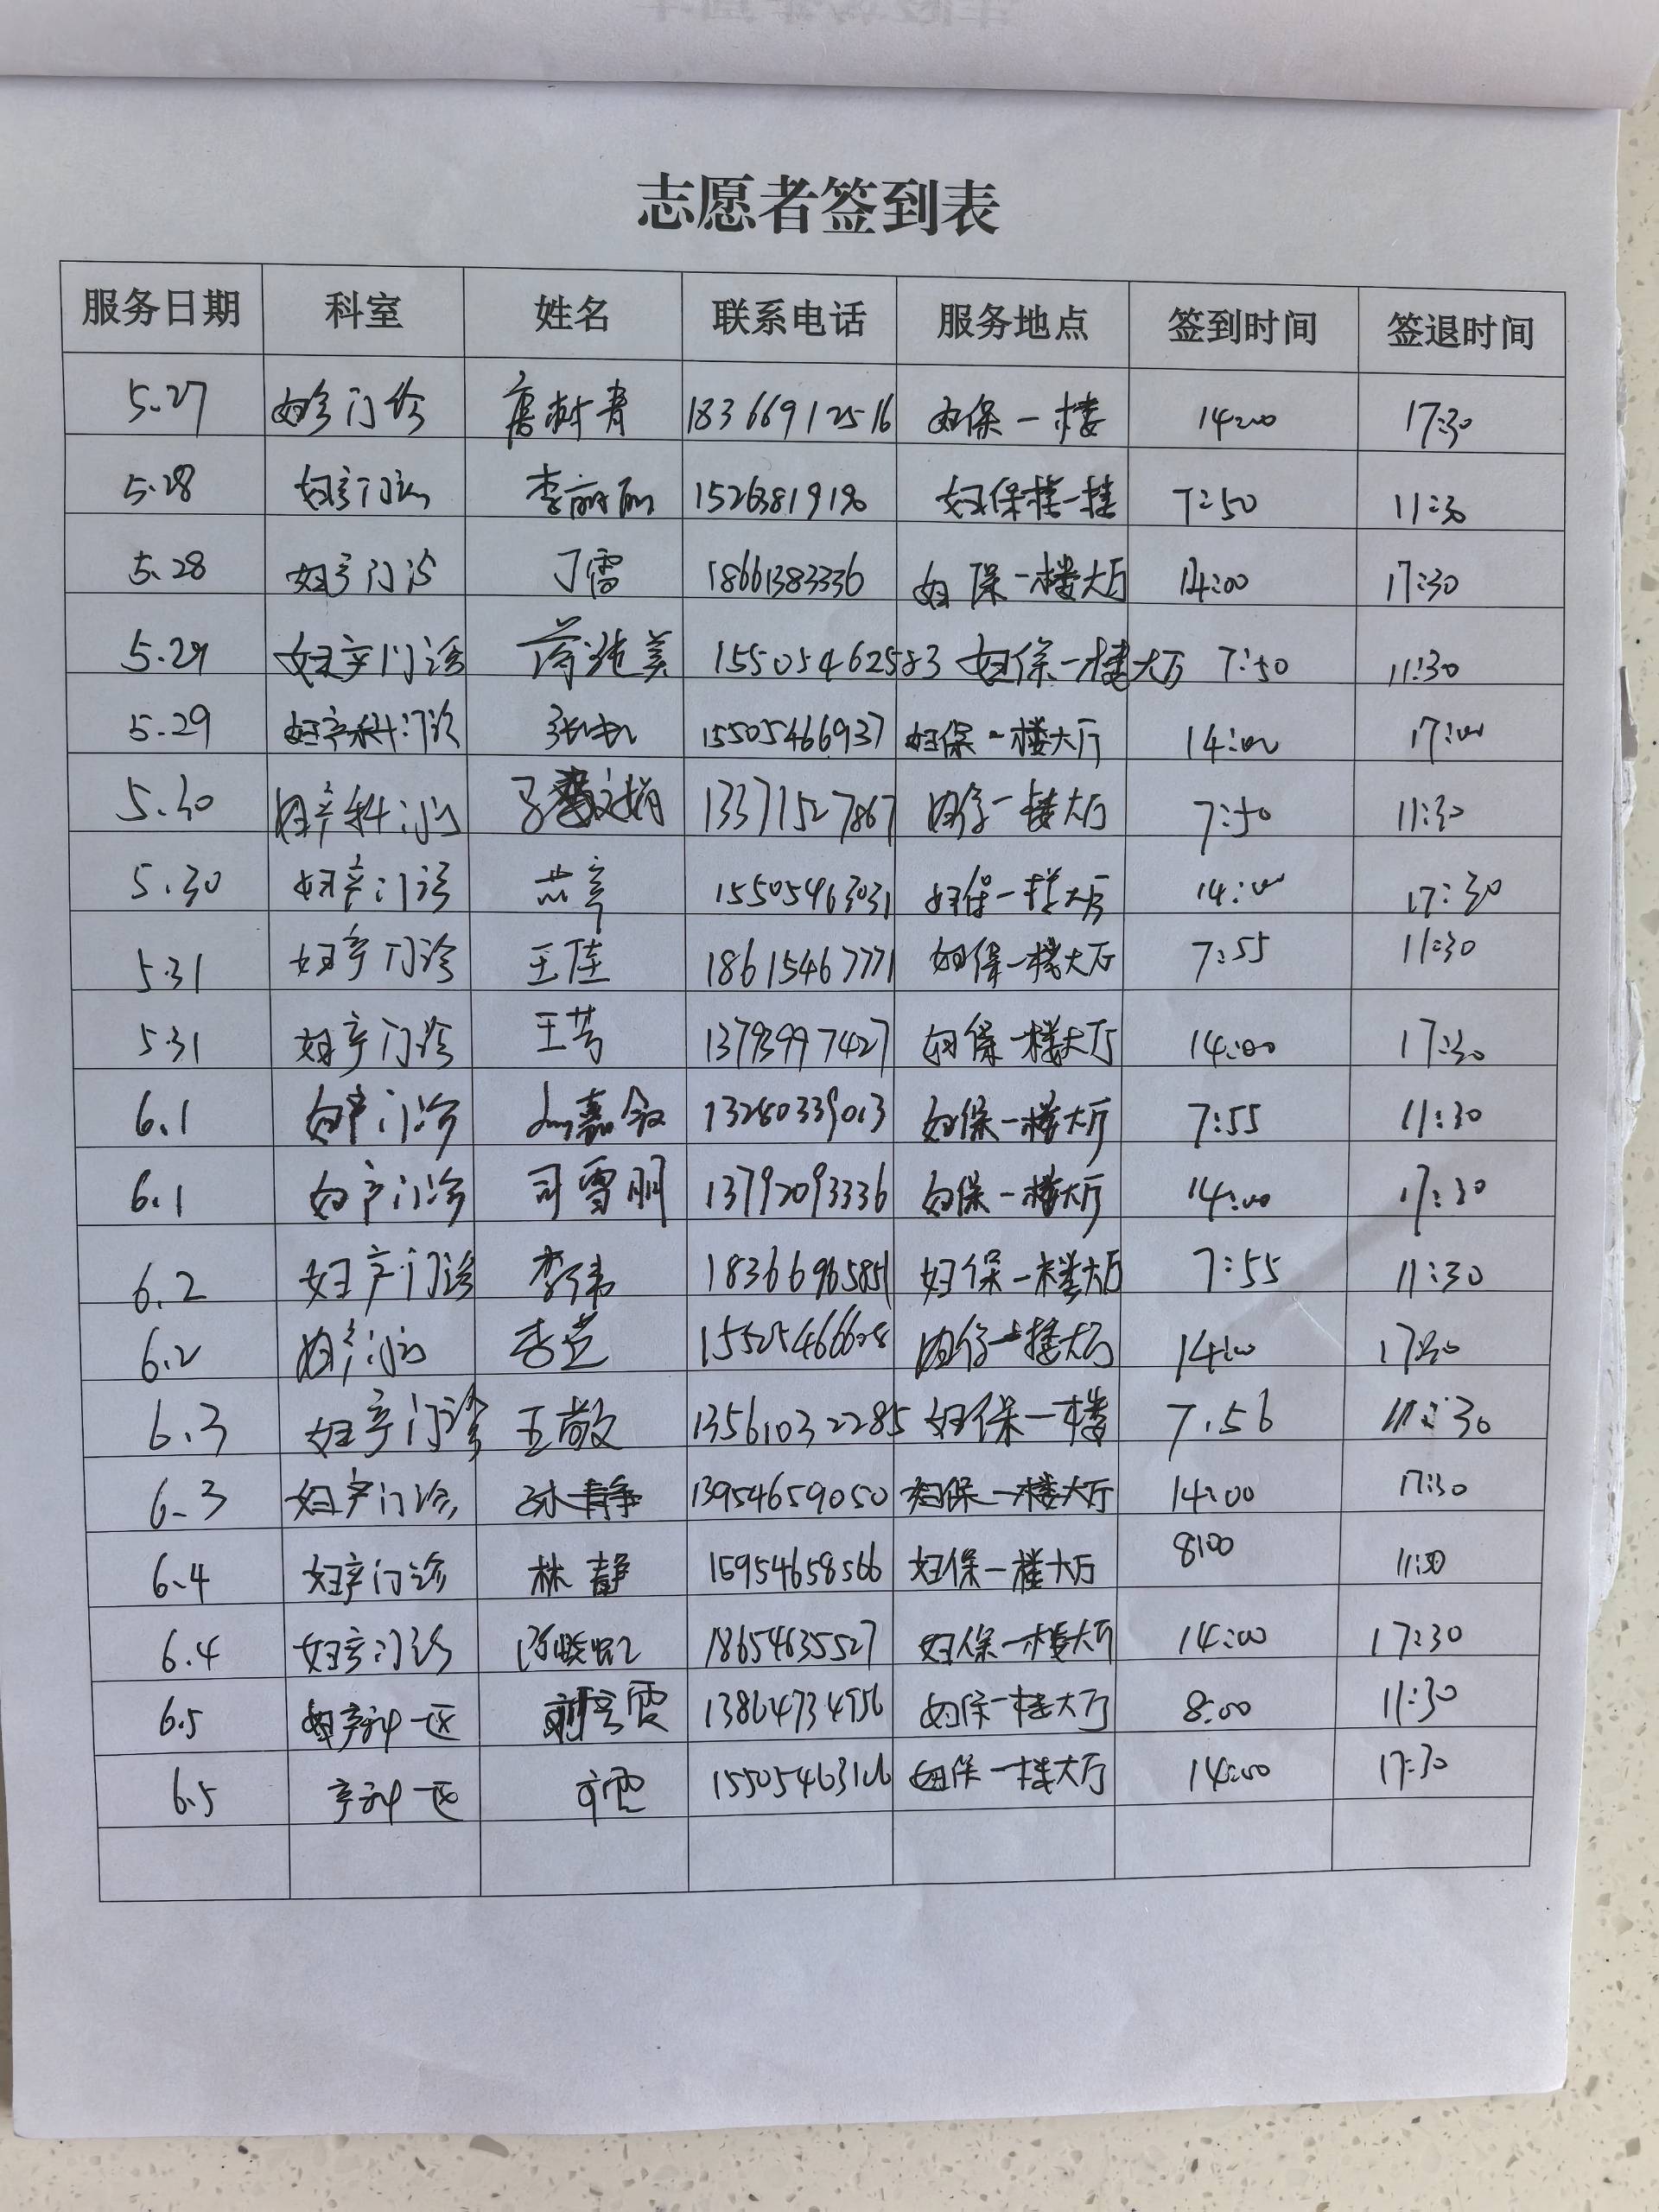 志愿者签到表
服务日期 科室 姓名 联系电话 服务地点 签到时间 签退时间
5.27 妇产门诊 唐树青 18366912516 妇保一楼 14:00 17:30
5.28 妇产门诊 李丽丽 妇保楼一楼 7:50 11:30
5.28 妇产门诊 丁雪 18661383336 妇保一楼大厅 14:00 17:30
5.29 妇产门诊 15505462583 妇保一楼大厅 7:50 11:30
5.29 妇产科门诊 15505466937 妇保一楼大厅 14:00 17:00
5.30 妇产科门诊 13371527867 妇保一楼大厅 7:50 11:30
5.30 妇产门诊 15505463031 妇保一楼大厅 14:00 17:30
5.31 妇产门诊 王佳 18615467771 妇保一楼大厅 7:55 11:30
5.31 妇产门诊 王芳 13793997427 妇保一楼大厅 14:00 17:30
6.1 妇产门诊 13280339013 妇保一楼大厅 7:55 11:30
6.1 妇产门诊 司雪朋 13792093336 妇保一楼大厅 14:00 17:30
6.2 妇产门诊 李伟 18366965851 妇保一楼大厅 7:55 11:30
6.2 妇产门诊 妇保一楼大厅 14:00 17:30
6.3 妇产门诊 王敬 13561032285 妇保一楼 7.56 11:30
6.3 妇产门诊 孙静 13954659050 妇保一楼大厅 14:00 17:30
6.4 妇产门诊 林静 15954658566 妇保一楼大厅 8:00 11:30
6.4 妇产门诊 18654635527 妇保一楼大厅 14:00 17:30
6.5 妇产科一区 13864734956 妇保一楼大厅 8:00 11:30
6.5 产科一区 妇保一楼大厅 14:00 17:30